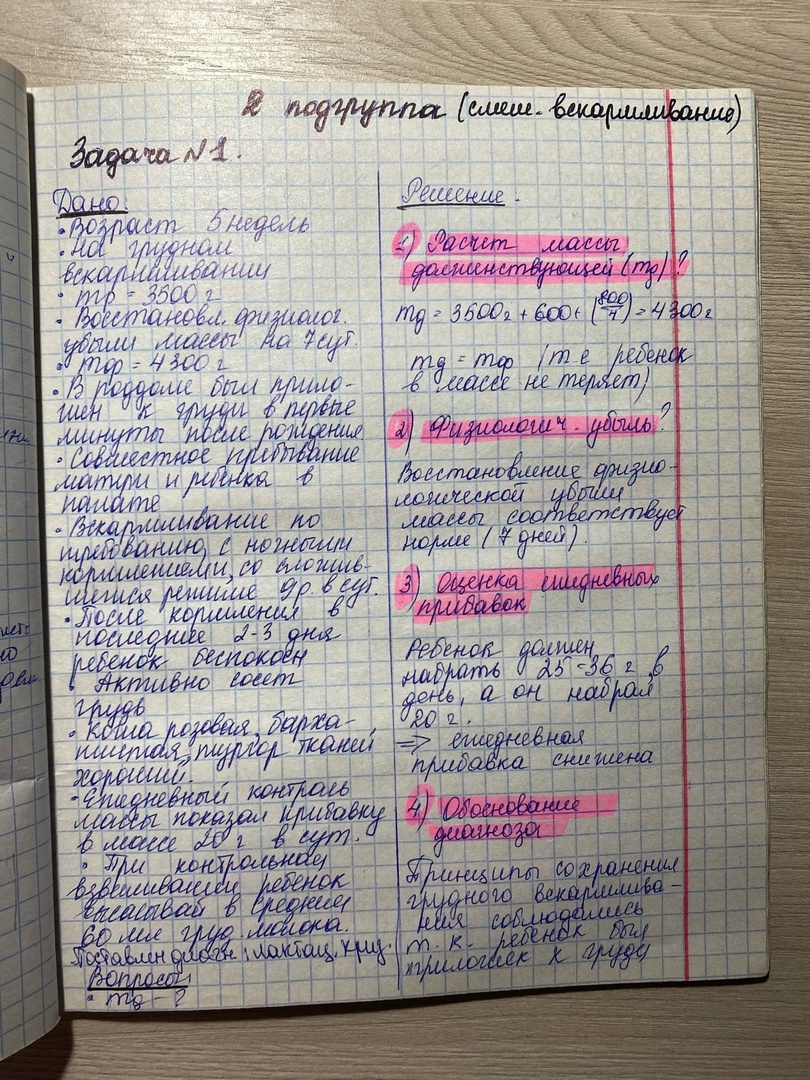 2 подгруппа (смеш. вскармливание)
Задача №1.
Дано:
• Возраст 5 недель
• На грудном
вскармливании
• mр = 3500 г
• Восстановл. физиолог.
убыли массы на 7 сут.
• mф = 4300 г
• В роддоме был прило-
жен к груди в первые
минуты после рождения
• Совместное пребывание
матери и ребенка в
палате
• Вскармливание по
требованию, с ночными
кормлениями, со сложив-
шемися режиме 9 р. в сут.
• После кормления в
последние 2-3 дня
ребенок беспокоен
• Активно сосет
грудь
• Кожа розовая, барха-
тистая, тургор тканей
хороший.
• Ежедневный контроль
массы показал прибавку
в массе 20 г в сут.
• При контрольном
взвешивании ребенок
высасывай в среднем
60 мл груд. молока.
Поставлен диагн.: лактац. криз.
Вопросы:
• mд - ?
Решение.
1) Расчет массы
долженствующей (mд)?
mд = 3500г + 600 + (800/4) = 4300г
mд = mф (т.е ребенок
в массе не теряет)
2) Физиологич. убыль?
Восстановление физио-
логической убыли
массы соответствует
норме (7 дней).
3) Оценка ежедневных
прибавок
Ребенок должен
набрать 25-36 г в
день, а он набрал
20 г.
=> ежедневная
прибавка снижена
4) Обоснование
диагноза
Принципы сохранения
грудного вскармлива-
ния соблюдались
т.к. ребенок был
приложен к груди